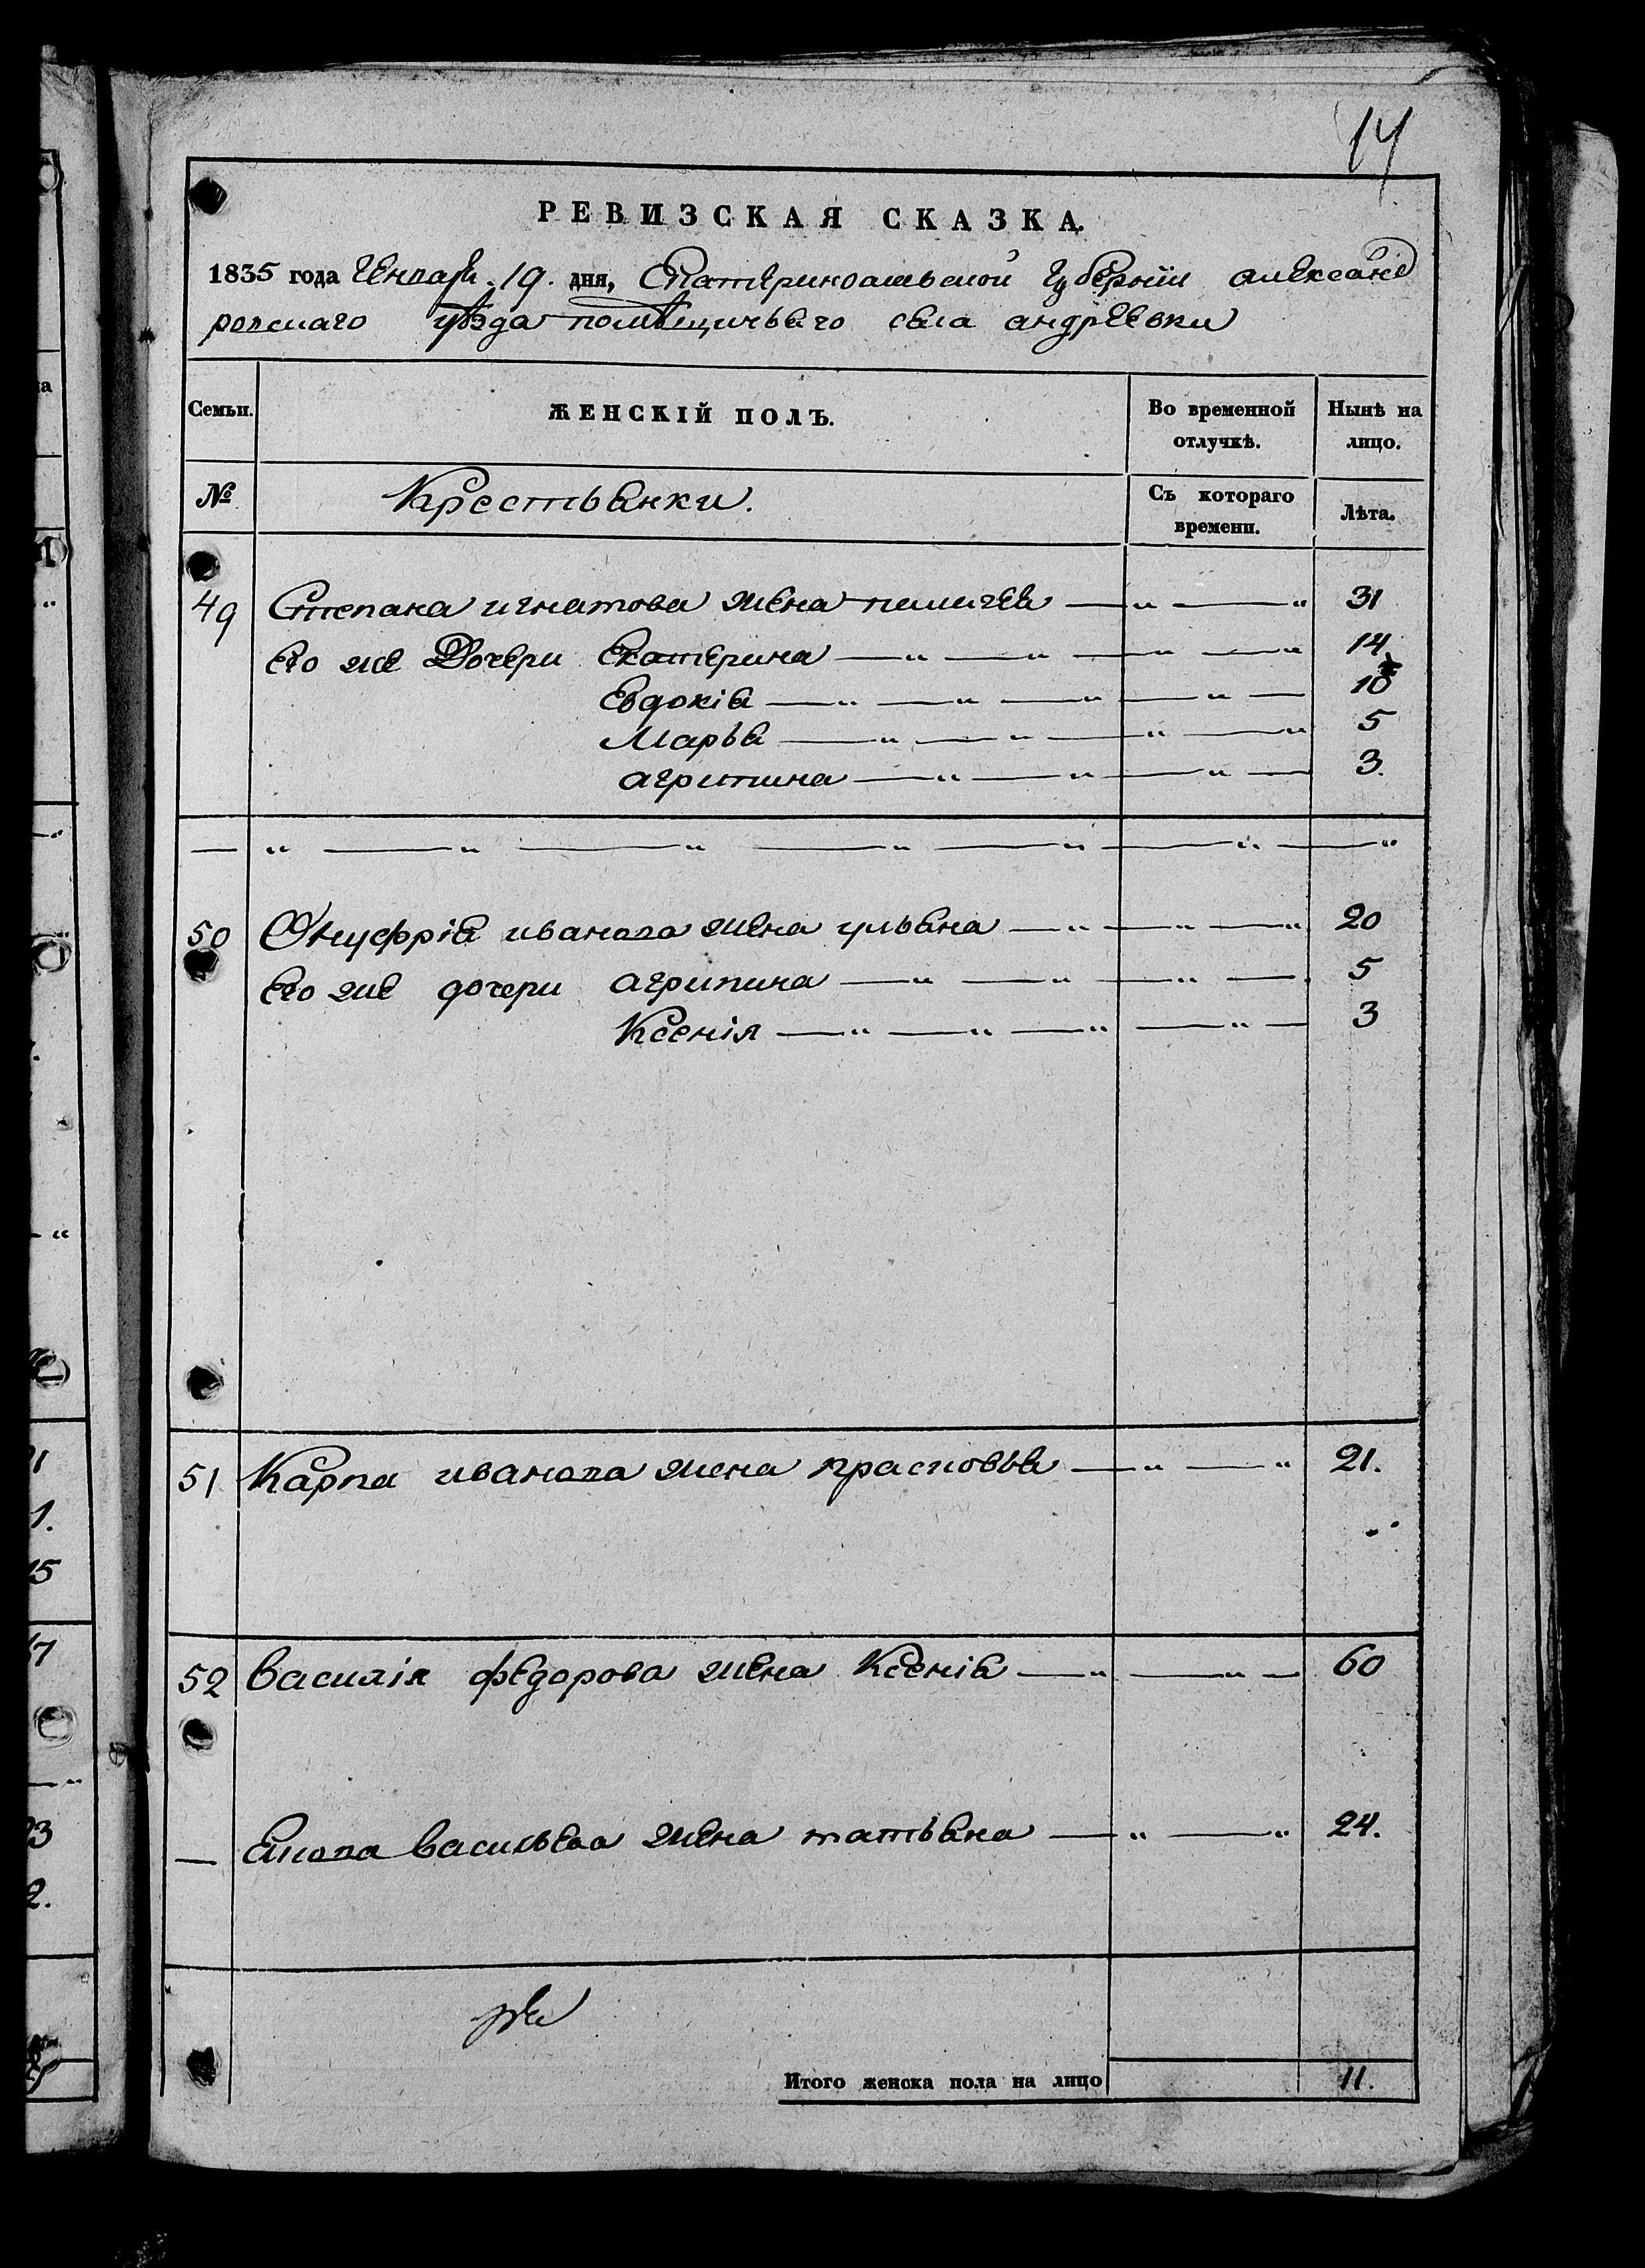 14
РЕВИЗСКАЯ СКАЗКА.
1835 года Генваря 19. дня, Екатеринославской губернии Александ
ровскаго уѣзда помѣщичьяго села андреевки
Семьи. ЖЕНСКІЙ ПОЛЪ. Во временной отлучкѣ. Нынѣ на лицо.
№ Крестьянки. Съ котораго времени. Лѣта.
49 Степана игнатова жена пелагея — „ — „ 31
Его же Дочери Екатерина — „ — „ — „ — „ 14
Евдокія — „ — „ — „ — „ — 10
Марья — „ — „ — „ — „ 5
агрипина — „ — „ — „ — 3.
— „ — „ — „ — „ — „ — „ — „
50 Онуфрія иванова жена ульяна — „ — „ — „ 20
Его же дочери агрипина — „ — „ — „ — 5
Ксенія — „ — „ — „ — „ — 3
51 Карпа иванова жена прасковья — „ — „ 21.
52 Василія федорова жена Ксенія — „ — „ — 60
— васильева жена татьяна — „ — „ 24.
Итого женска пола на лицо 11.